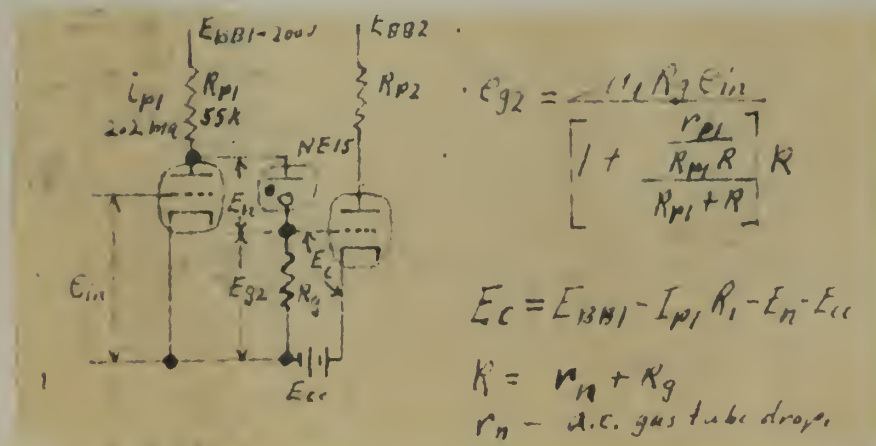 E_BB1-200V
E_BB2
R_p1
55K
i_p1
2.02 ma
R_p2
NE15
E_n
E_c
E_in
E_g2
R_g
E_cc
e_g2 = -u_1 R_g E_in / [1 + r_p1 / (R_p1 R / (R_p1 + R))] R
E_c = E_BB1 - I_p1 R_1 - E_n - E_cc
R = r_n + R_g
r_n - a.c. gas tube drop.